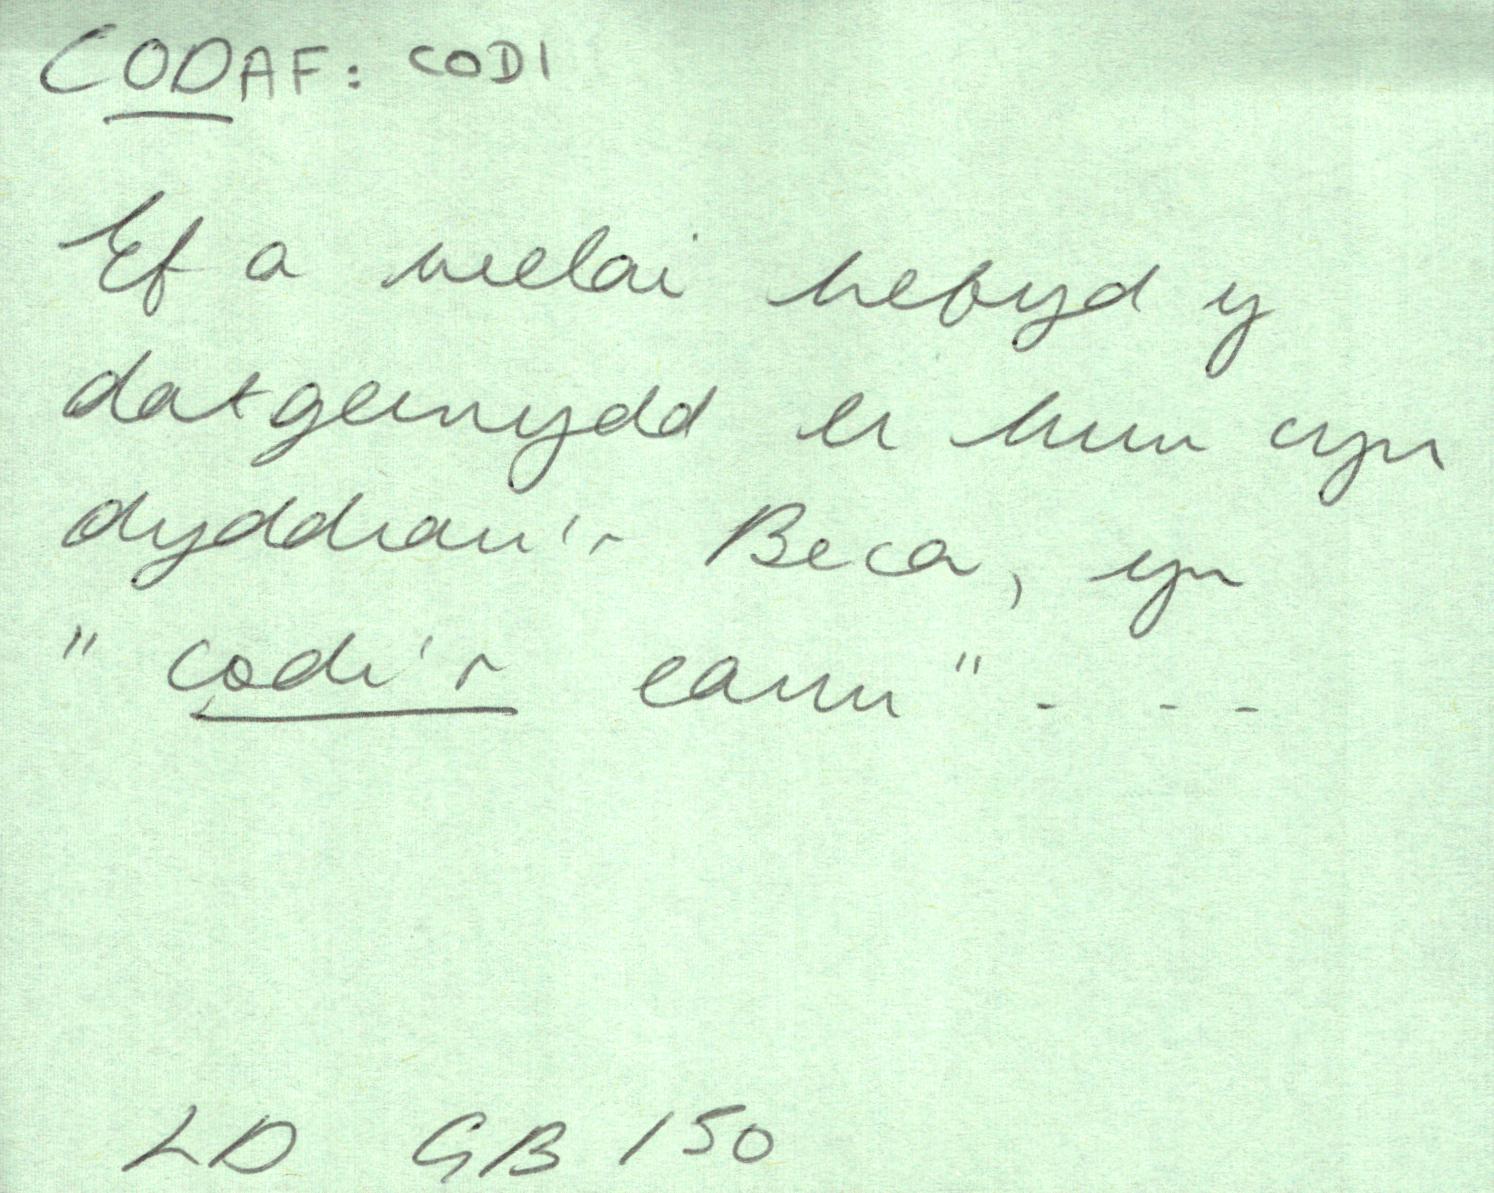 CODAF: CODI
Ef a welai hefyd y
datgeinydd ei hun cyn
dyddiau'r Beca, yn
" codi'r canu" . . .
LD GB 150